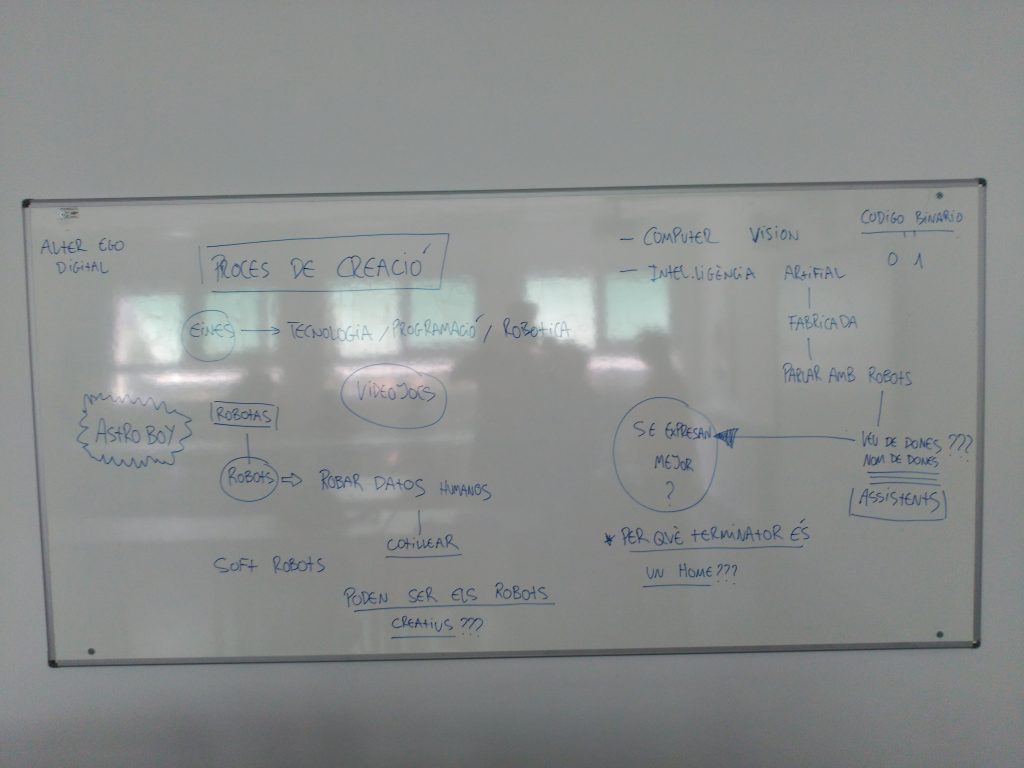 ALTER EGO
DIGITAL
PROCES DE CREACIÓ
EINES → TECNOLOGIA / PROGRAMACIÓ / ROBOTICA
VIDEOJOCS
ASTRO BOY
ROBOTAS
ROBOTS ⇒ ROBAR DATOS HUMANOS
COTILLEAR
SOFT ROBOTS
PODEN SER ELS ROBOTS
CREATIUS ???
- COMPUTER VISION
- INTEL.LIGÈNCIA ARTIFIAL
FABRICADA
PARLAR AMB ROBOTS
CODIGO BINARIO
0 1
VEU DE DONES ???
NOM DE DONES
ASSISTENTS
SE EXPRESAN
MEJOR
?
* PER QUÈ TERMINATOR ÉS
UN HOME ???